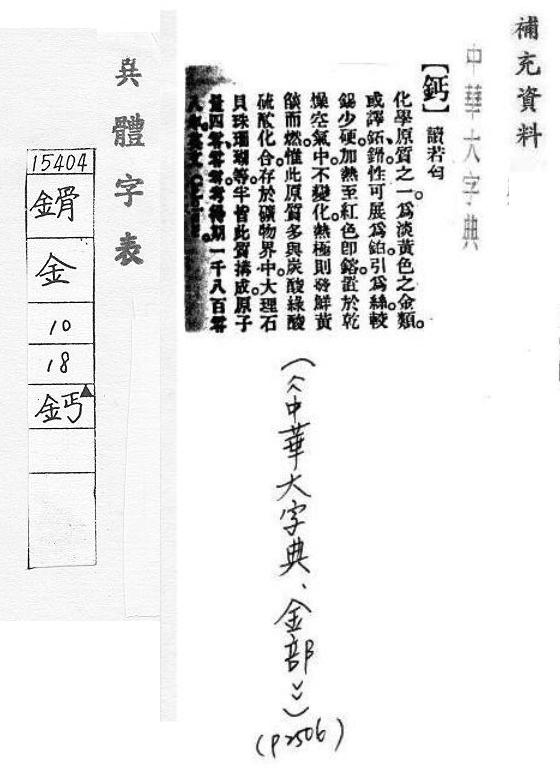 補充資料
中華大字典
【鈣】讀若匄
化學原質之一。爲淡黃色之金類。
或譯鉐鎉。性可展爲鉑。引爲絲。較
錫少硬。加熱至紅色卽鎔。置於乾
燥空氣中。不變化。熱極則發鮮黃
燄而燃。惟此原質多與炭酸綠酸
硫酸化合。存於礦物界中。大理石
貝珠珊瑚等。半皆此質搆成。原子
一千八百零
(《中華大字典、金部》)
(P2506)
異體字表
15404
鎉
金
10
18
鈣